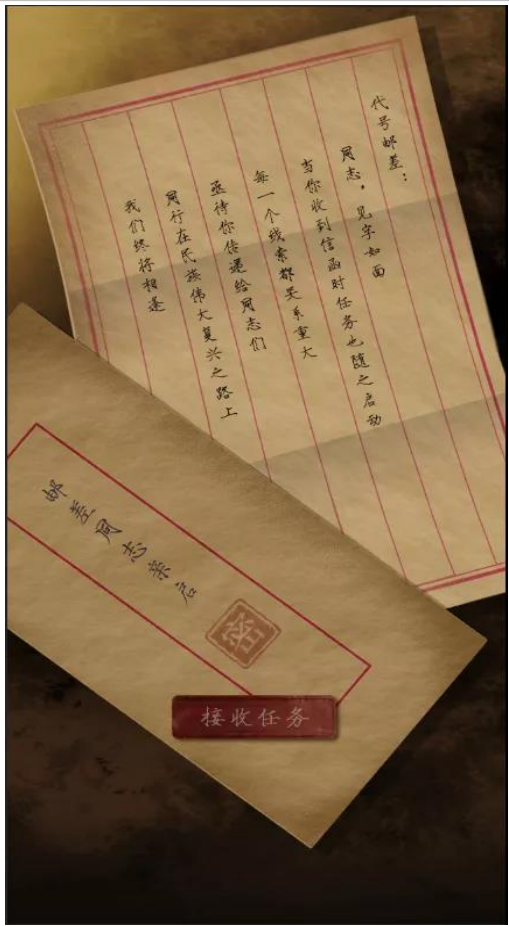 代号邮差：
同志，见字如面
当你收到信函时任务也随之启动
每一个线索都关系重大
亟待你传递给同志们
同行在民族伟大复兴之路上
我们终将相逢
邮差同志亲启
密
接收任务